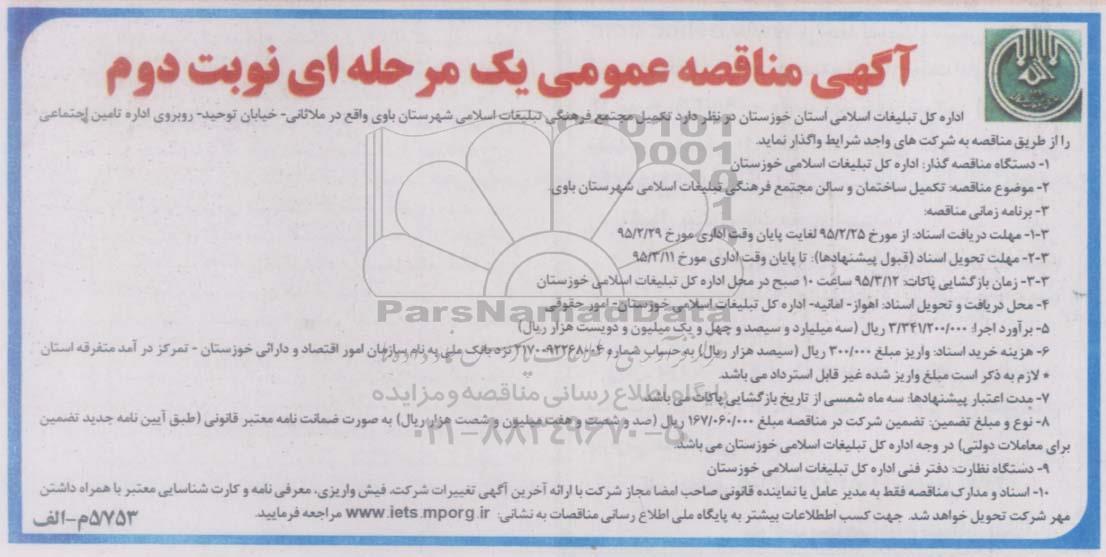 آگهی مناقصه عمومی یک مرحله ای نوبت دوم
اداره کل تبلیغات اسلامی استان خوزستان در نظر دارد تکمیل مجتمع فرهنگی تبلیغات اسلامی شهرستان باوی واقع در ملاثانی- خیابان توحید- روبروی اداره تامین اجتماعی
را از طریق مناقصه به شرکت های واجد شرایط واگذار نماید.
۱- دستگاه مناقصه گذار: اداره کل تبلیغات اسلامی خوزستان
۲- موضوع مناقصه: تکمیل ساختمان و سالن مجتمع فرهنگی تبلیغات اسلامی شهرستان باوی.
۳- برنامه زمانی مناقصه:
۳-۱- مهلت دریافت اسناد: از مورخ ۹۵/۲/۲۵ لغایت پایان وقت اداری مورخ ۹۵/۲/۲۹
۳-۲- مهلت تحویل اسناد (قبول پیشنهادها): تا پایان وقت اداری مورخ ۹۵/۳/۱۱
۳-۳- زمان بازگشایی پاکات: ۹۵/۳/۱۲ ساعت ۱۰ صبح در محل اداره کل تبلیغات اسلامی خوزستان
۴- محل دریافت و تحویل اسناد: اهواز- امانیه- اداره کل تبلیغات اسلامی خوزستان- امور حقوقی
ParsNamadData
۵- برآورد اجرا: ۳/۳۴۱/۲۰۰/۰۰۰ ریال (سه میلیارد و سیصد و چهل و یک میلیون و دویست هزار ریال)
۶- هزینه خرید اسناد: واریز مبلغ ۳۰۰/۰۰۰ ریال (سیصد هزار ریال) به حساب شماره نزد بانک ملی به نام سازمان امور اقتصاد و دارائی خوزستان - تمرکز در آمد متفرقه استان
* لازم به ذکر است مبلغ واریز شده غیر قابل استرداد می باشد.
۷- مدت اعتبار پیشنهادها: سه ماه شمسی از تاریخ بازگشایی پاکات می باشد.
پایگاه اطلاع رسانی مناقصه و مزایده
۸- نوع و مبلغ تضمین: تضمین شرکت در مناقصه مبلغ ۱۶۷/۰۶۰/۰۰۰ ریال (صد و شصت و هفت میلیون و شصت هزار ریال) به صورت ضمانت نامه معتبر قانونی (طبق آیین نامه جدید تضمین
برای معاملات دولتی) در وجه اداره کل تبلیغات اسلامی خوزستان می باشد.
۰۲۱-۸۸۳۴۹۶۷۰-۵
۹- دستگاه نظارت: دفتر فنی اداره کل تبلیغات اسلامی خوزستان
۱۰- اسناد و مدارک مناقصه فقط به مدیر عامل یا نماینده قانونی صاحب امضا مجاز شرکت با ارائه آخرین آگهی تغییرات شرکت، فیش واریزی، معرفی نامه و کارت شناسایی معتبر با همراه داشتن
مهر شرکت تحویل خواهد شد. جهت کسب اططلاعات بیشتر به پایگاه ملی اطلاع رسانی مناقصات به نشانی: www.iets.mporg.ir مراجعه فرمایید.
۵/۷۵۳م-الف